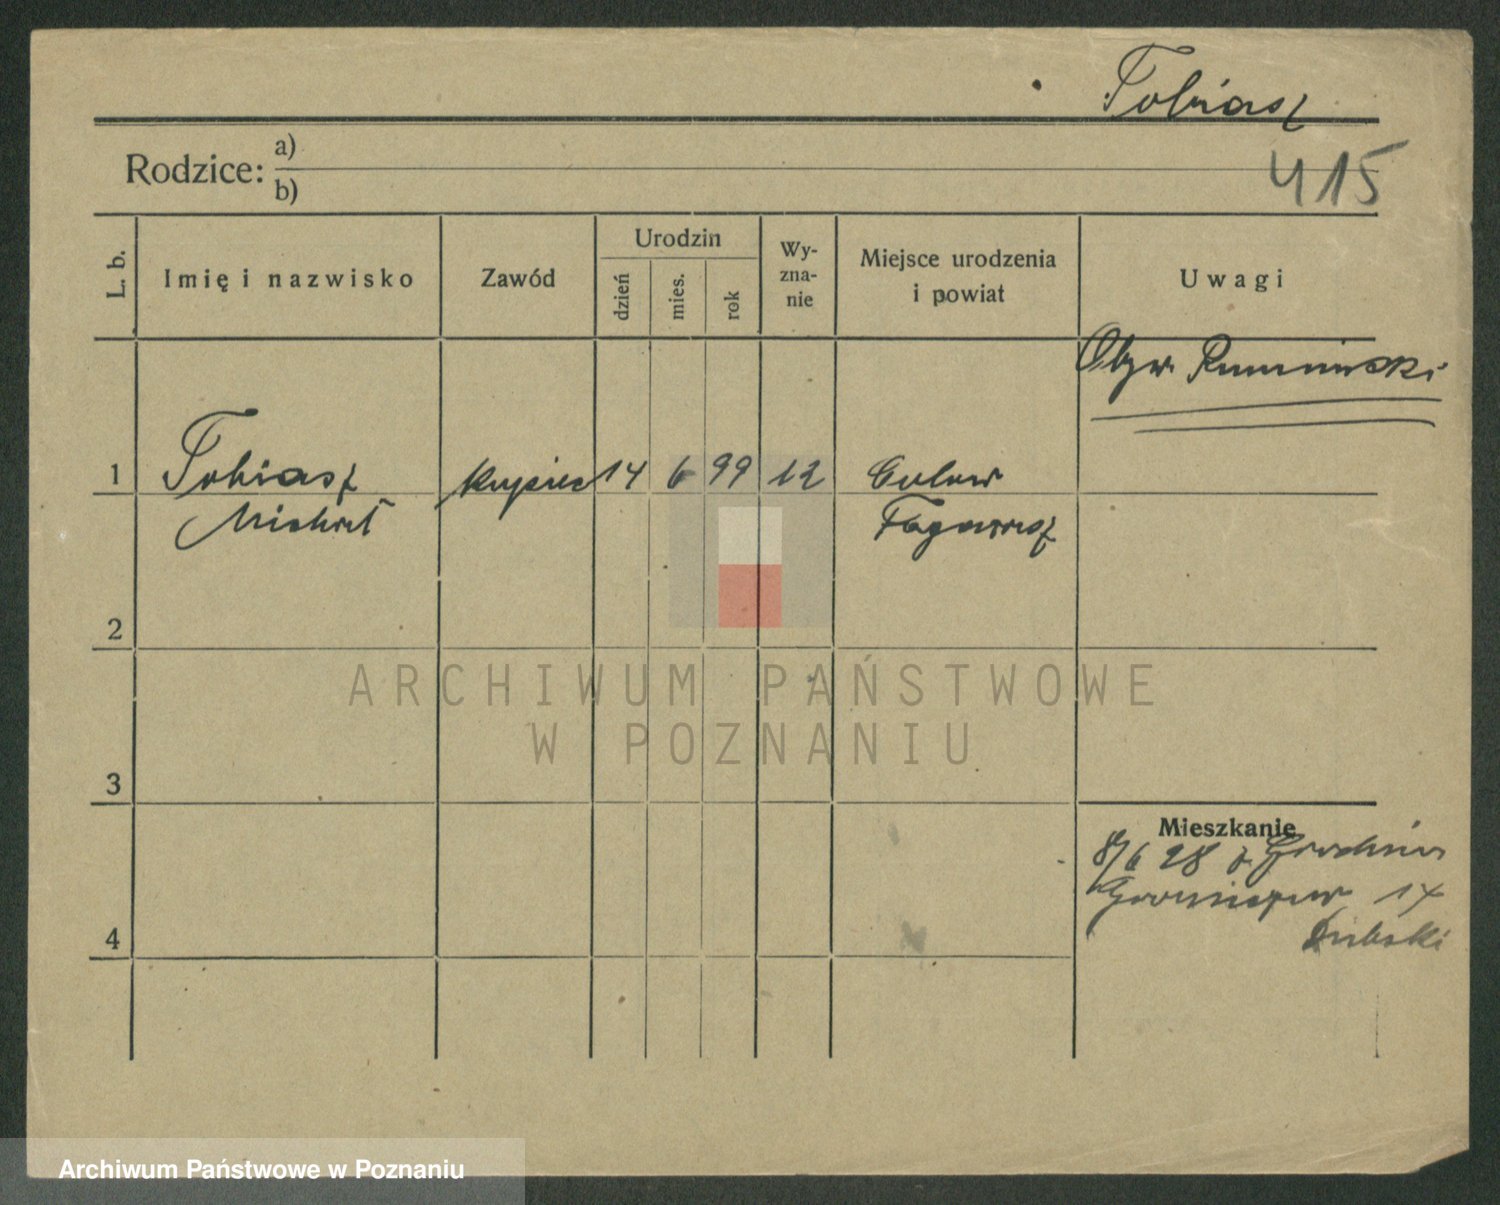 Tobiasz
415
Rodzice: a)
b)
L. b.
Imię i nazwisko
Zawód
Urodzin
dzień
mies.
rok
Wy-
zna-
nie
Miejsce urodzenia
i powiat
Uwagi
Obyw. Rumuński
1
Tobiasz
Michał
kupiec
14
6
99
12
2
ARCHIWUM PAŃSTWOWE
W POZNANIU
3
Mieszkanie
8/6 28 z
4
Archiwum Państwowe w Poznaniu